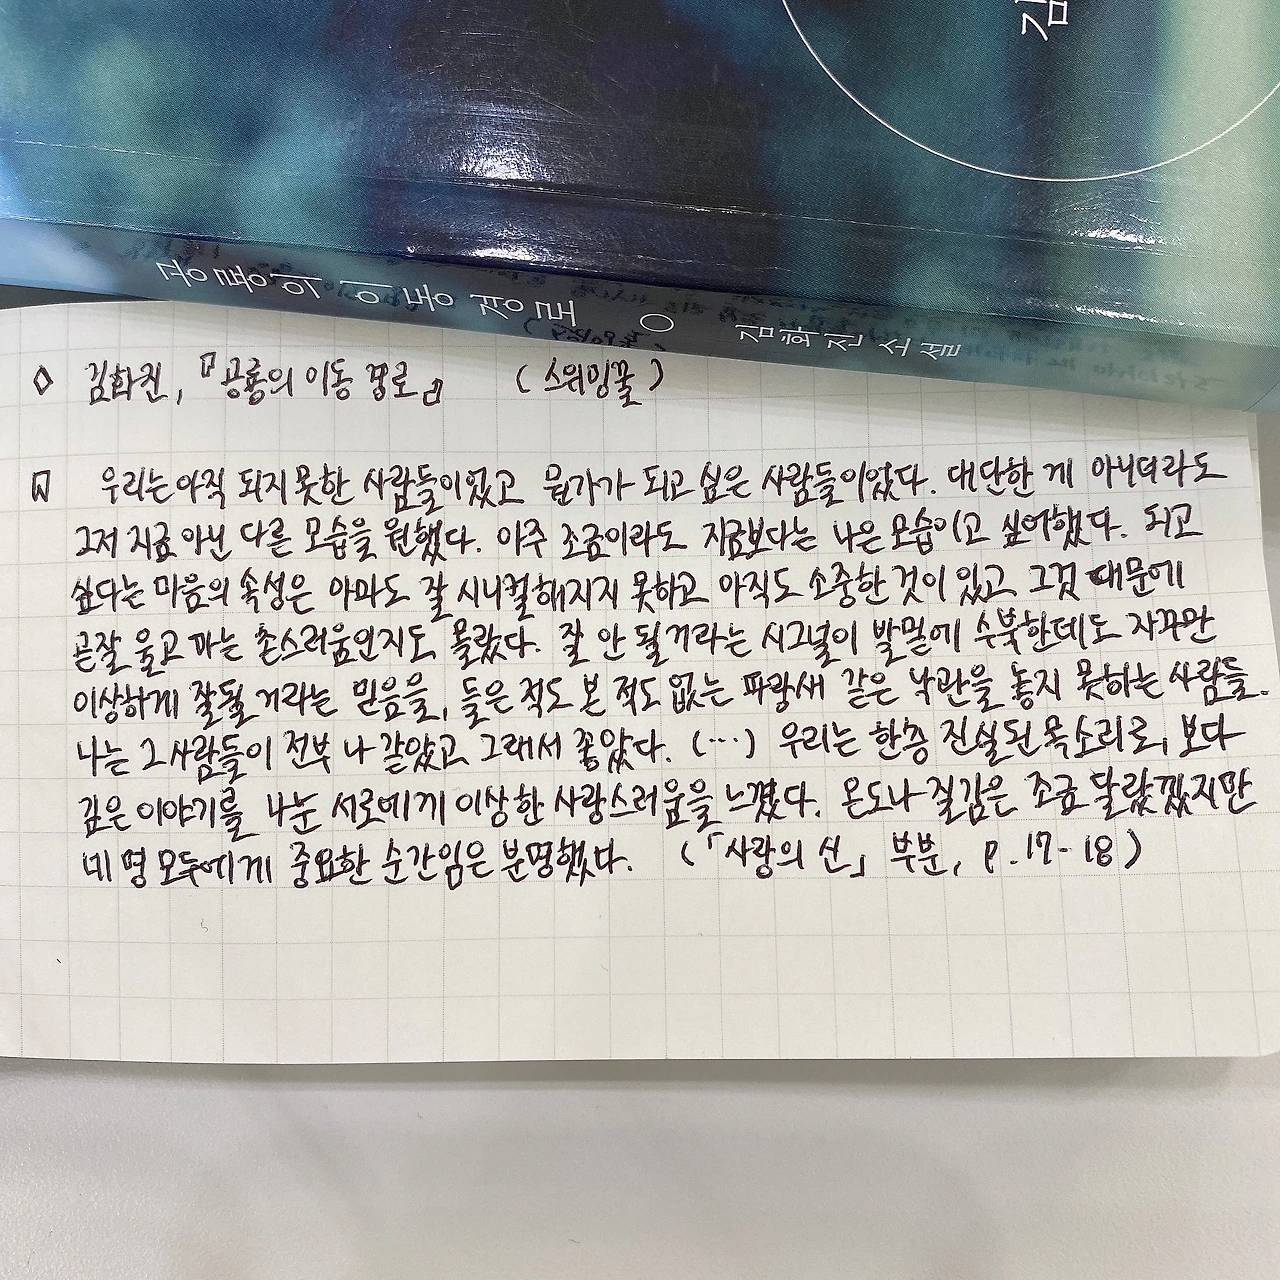 김
공룡의 이동 경로 ○ 김화진 소설
◇ 김화진, 『공룡의 이동 경로』 (스위밍꿀)
우리는 아직 되지 못한 사람들이었고 뭔가가 되고 싶은 사람들이었다. 대단한 게 아니더라도
그저 지금 아닌 다른 모습을 원했다. 아주 조금이라도 지금보다는 나은 모습이고 싶어했다. 되고
싶다는 마음의 속성은 아마도 잘 시니컬해지지 못하고 아직도 소중한 것이 있고 그것 때문에
곧잘 울고 마는 촌스러움인지도 몰랐다. 잘 안 될 거라는 시그널이 발밑에 수북한데도 자꾸만
이상하게 잘될 거라는 믿음을, 들은 적도 본 적도 없는 파랑새 같은 낙관을 놓지 못하는 사람들.
나는 그 사람들이 전부 나 같았고 그래서 좋았다. (…) 우리는 한층 진실된 목소리로, 보다
깊은 이야기를 나눈 서로에게 이상한 사랑스러움을 느꼈다. 온도나 질감은 조금 달랐겠지만
네 명 모두에게 중요한 순간임은 분명했다. (「사랑의 신」 부분, p.17-18)